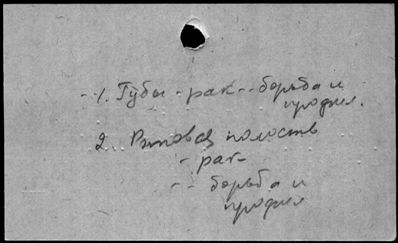 -- 1. Губы - рак -- борьба и
профил.
2. Ротовая полость
- рак -
-- борьба и
профил